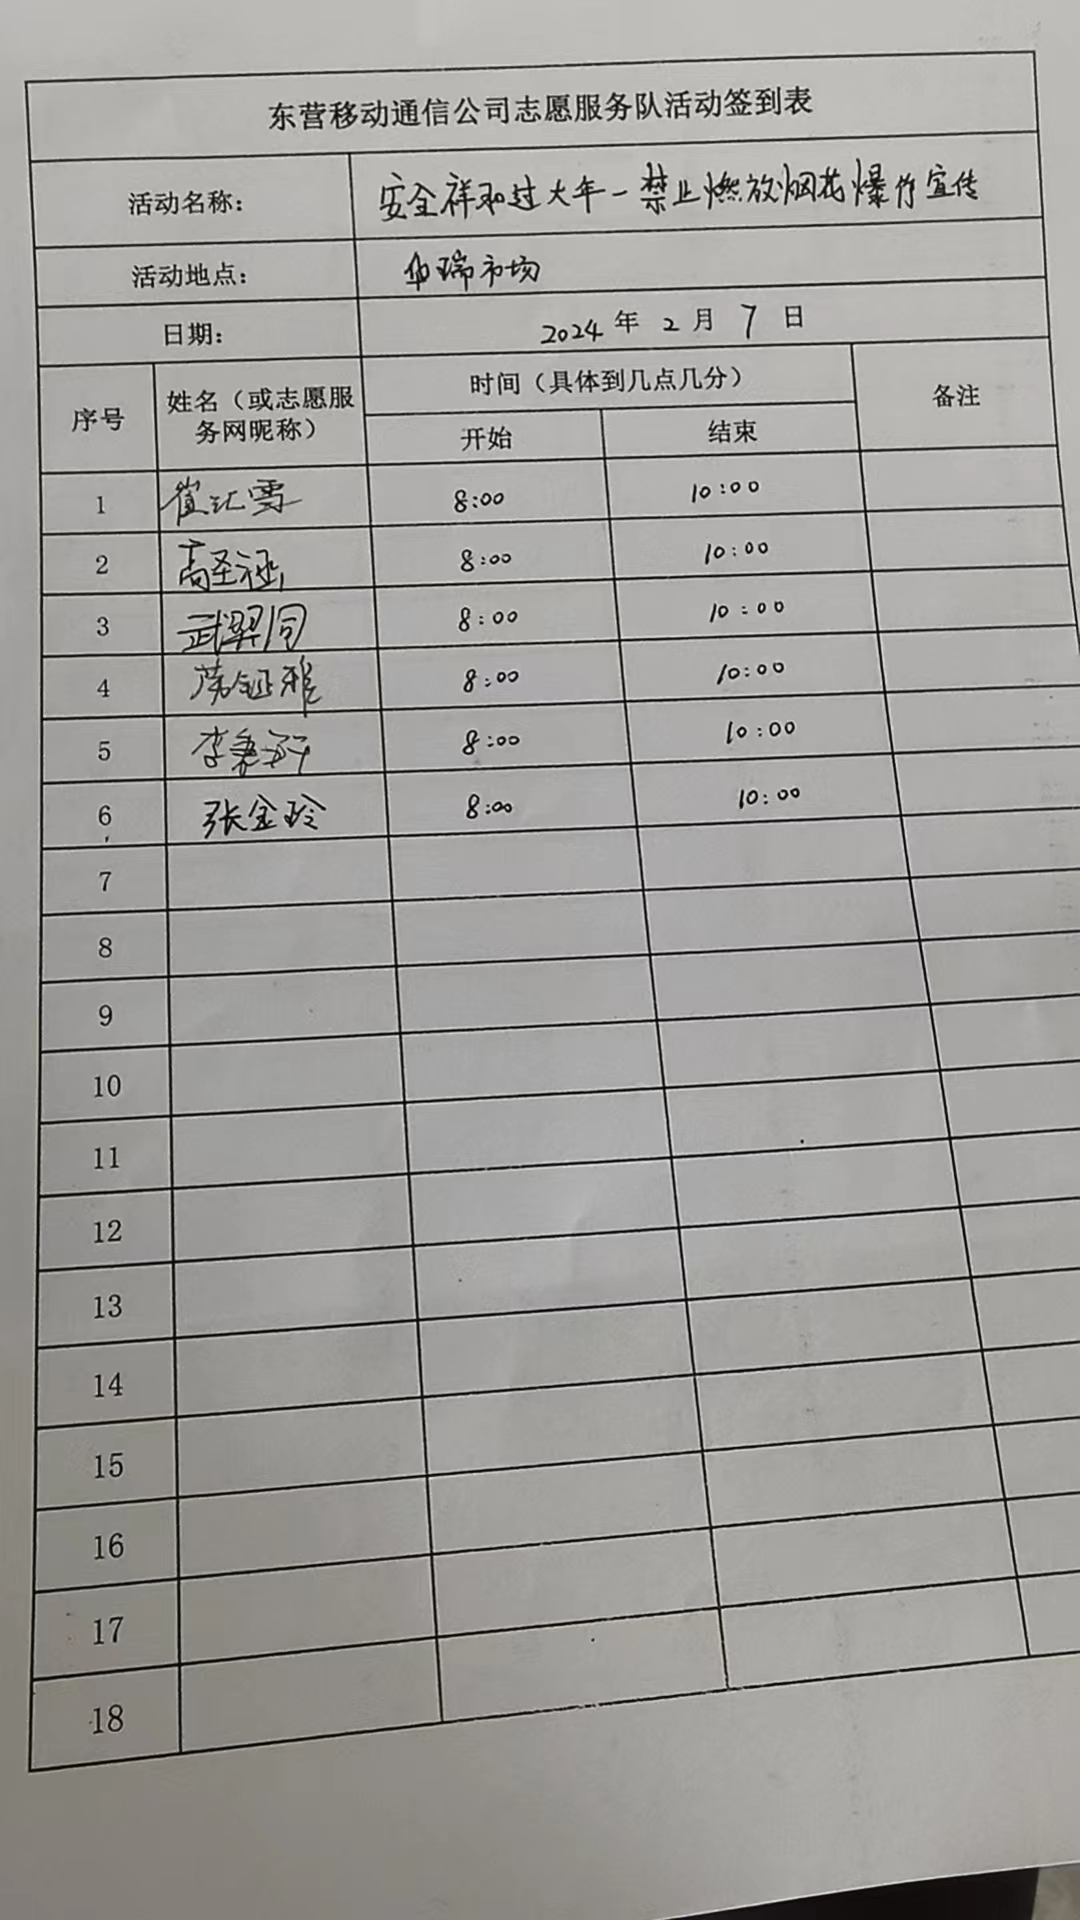 东营移动通信公司志愿服务队活动签到表
活动名称: 安全祥和过大年一禁止燃放烟花爆竹宣传
活动地点: 华瑞市场
日期: 2024 年 2 月 7 日
序号 姓名（或志愿服务网昵称） 时间（具体到几点几分） 备注
开始 结束
1 崔汇雪 8:00 10:00
2 高圣涵 8:00 10:00
3 武翠同 8:00 10:00
4 8:00 10:00
5 李 8:00 10:00
6 张金玲 8:00 10:00
7
8
9
10
11
12
13
14
15
16
17
18